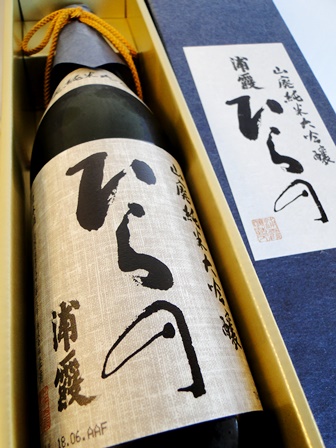 山廃純米大吟醸
ひらの
浦霞
18.06.AAF
山廃純米大吟醸
浦霞
ひらの